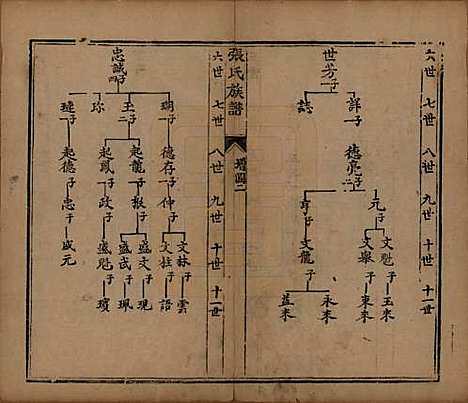 六世 七世 八世 九世 十世 十一世
世芳子
詳子 德亮子
誌
元子 文魁子 玉來
文舉子 東來
亨子 文龍子 永來
益來
張氏族譜
六世 七世 八世 九世 十世 十一世
忠誠子四
瑚子 德存子 仲子 文林子 雲
文柱子 語
玉子二 起龍子 振子 盛文子 現
盛武子 珮
起鳳子 政子 盛魁子 瓆
珎
璉子 起德子 忠子 成元